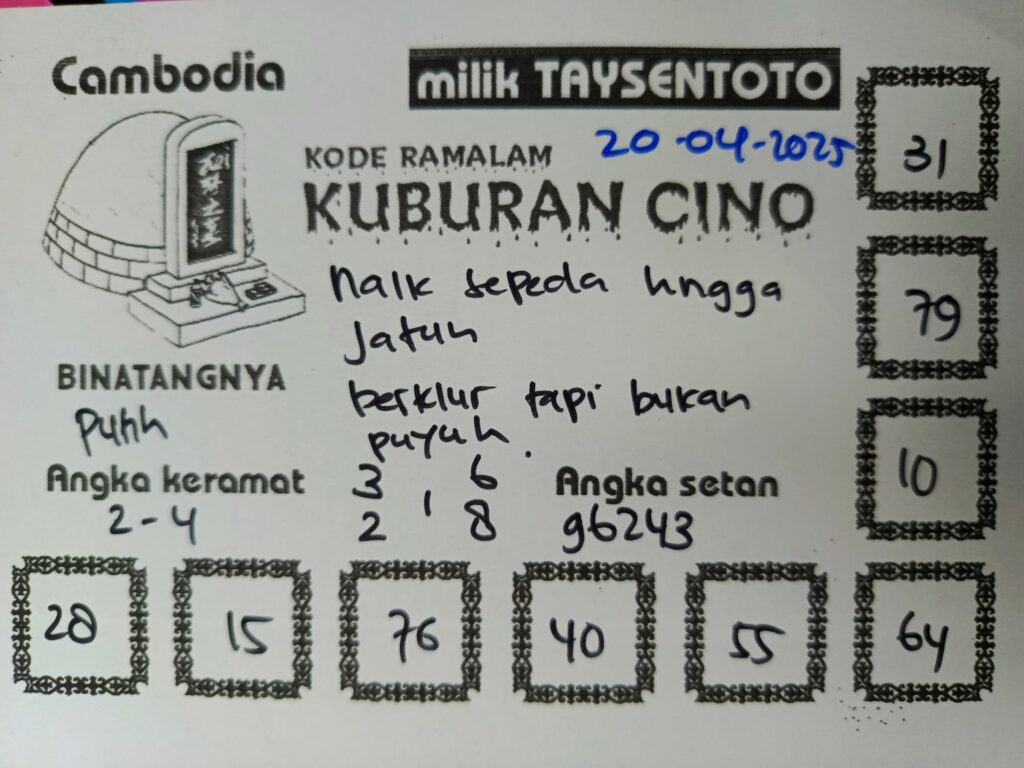 Cambodia
milik TAYSENTOTO
20-04-2025
KODE RAMALAM
KUBURAN CINO
Naik sepeda hngga
Jatuh
berklur tapi bukan
puyuh.
BINATANGNYA
Putih
Angka keramat
2-4
3 6
1
2 8
Angka setan
96243
31
79
10
28
15
76
40
55
64